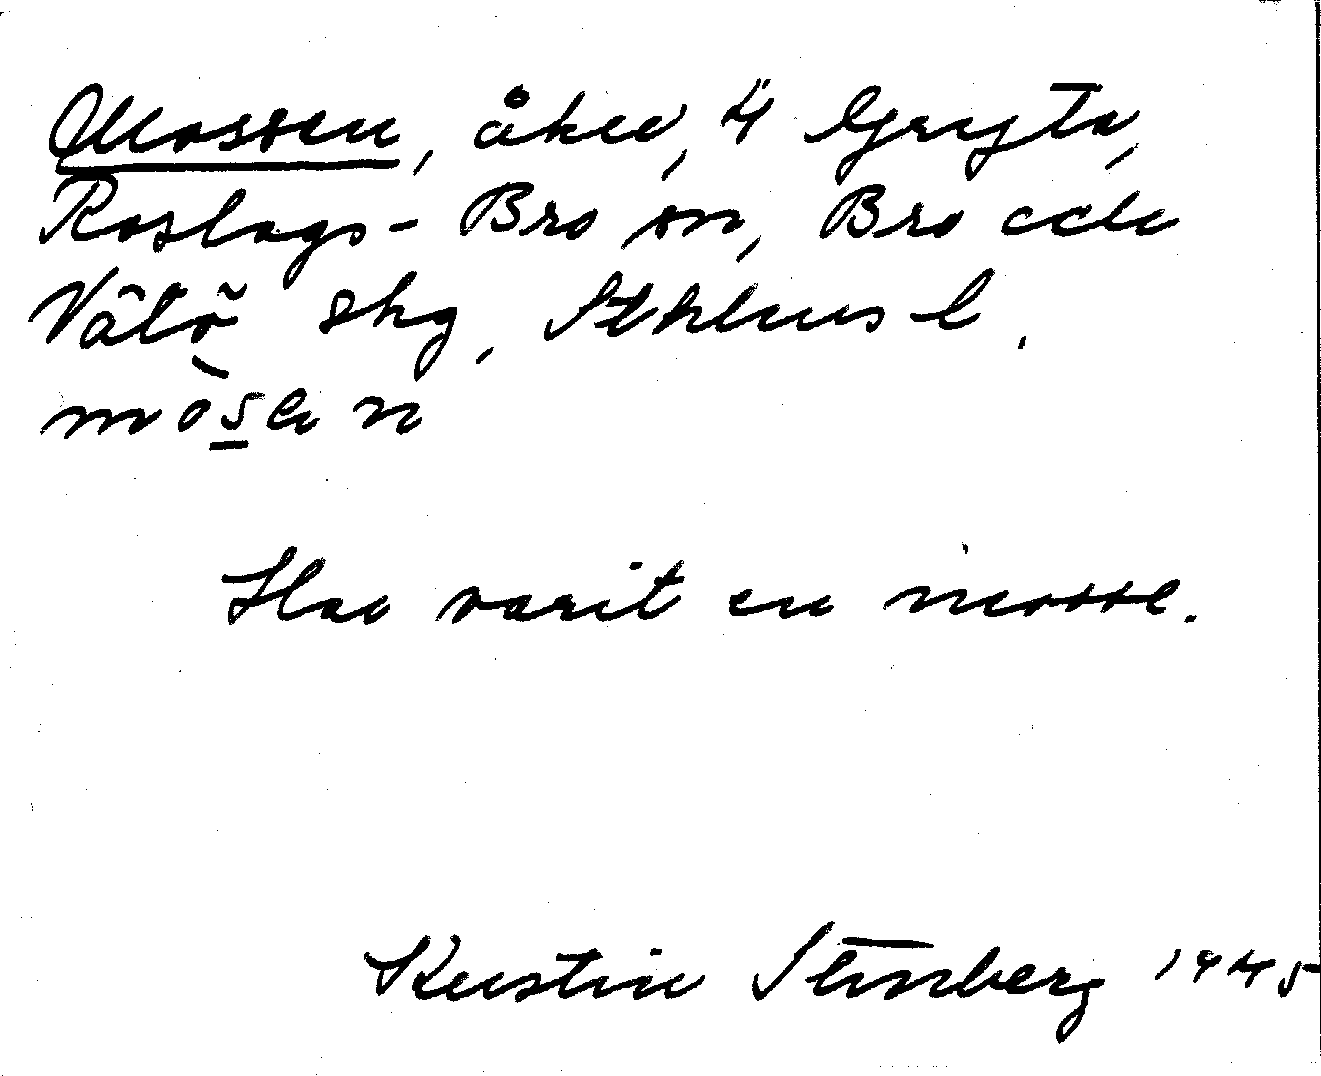 Mossen, åker, 4 Gryta,
Roslags-Bro sn, Bro och
Vätö skg, Sthlms l.
mòsen
Har varit en mosse.
Kerstin Stenberg 1945